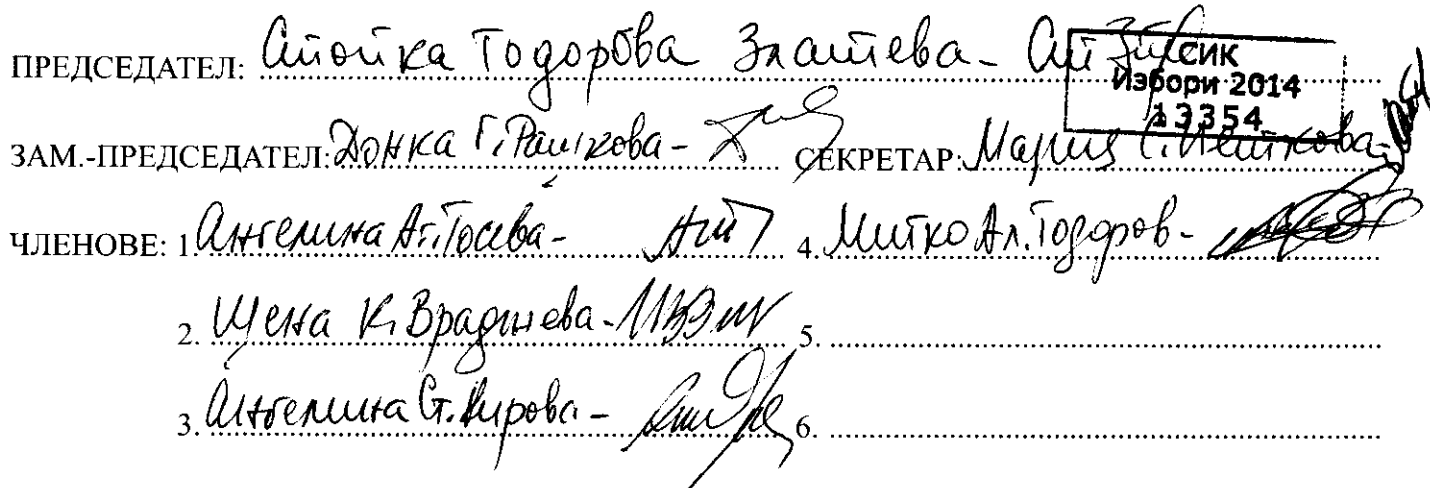 ПРЕДСЕДАТЕЛ: Стойка Тодорова Златева -
СИК
Избори 2014
13354
ЗАМ.-ПРЕДСЕДАТЕЛ: Донка Г. Рашкова - СЕКРЕТАР: Мария С. Петкова -
ЧЛЕНОВЕ: 1. Ангелина Ат. Тосева - 4. Митко Ал. Тодоров -
2. Цена К. 5.
3. Ангелина Ст. Кирова - 6.